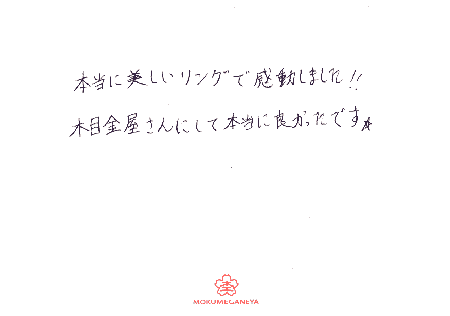 本当に美しいリングで感動しました!!
木目金屋さんにして本当に良かったです☆
MOKUMEGANEYA